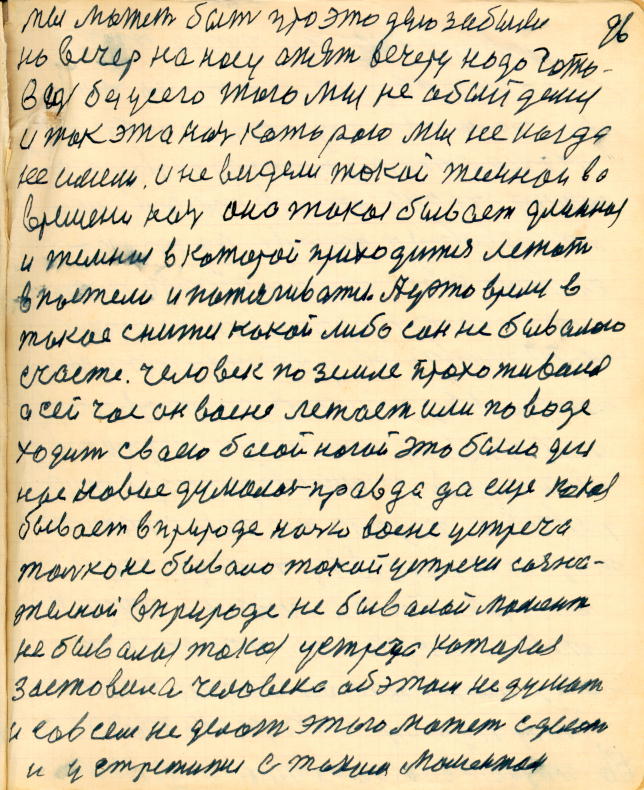 96
мы может быт про это дело забыли
но вечер на носу опят вечеру надо гото-
вца без усего того мы не обойдемся
и так эта ноч которою мы не когда
не имели. и не видели такой темной во
времени ноч она такая бывает длинная
и темная в которой приходится лежат
в постели и потягиватся. А у это время в
такое снится какой либо сон не бывалою
счасте. человек по земле прохожывался
а сей час он восне летает или по воде
ходит своею босой ногой это было для
нас новые думалос правда да еще какая
бывает в природе начю восне устреча
толко не бывало такой устречи созна-
телной в природе не бывалой момент
не бывалая такая устреча которая
заставила человека об этом не думат
и совсем не делат этого может сделат
и устретится с таким моментом